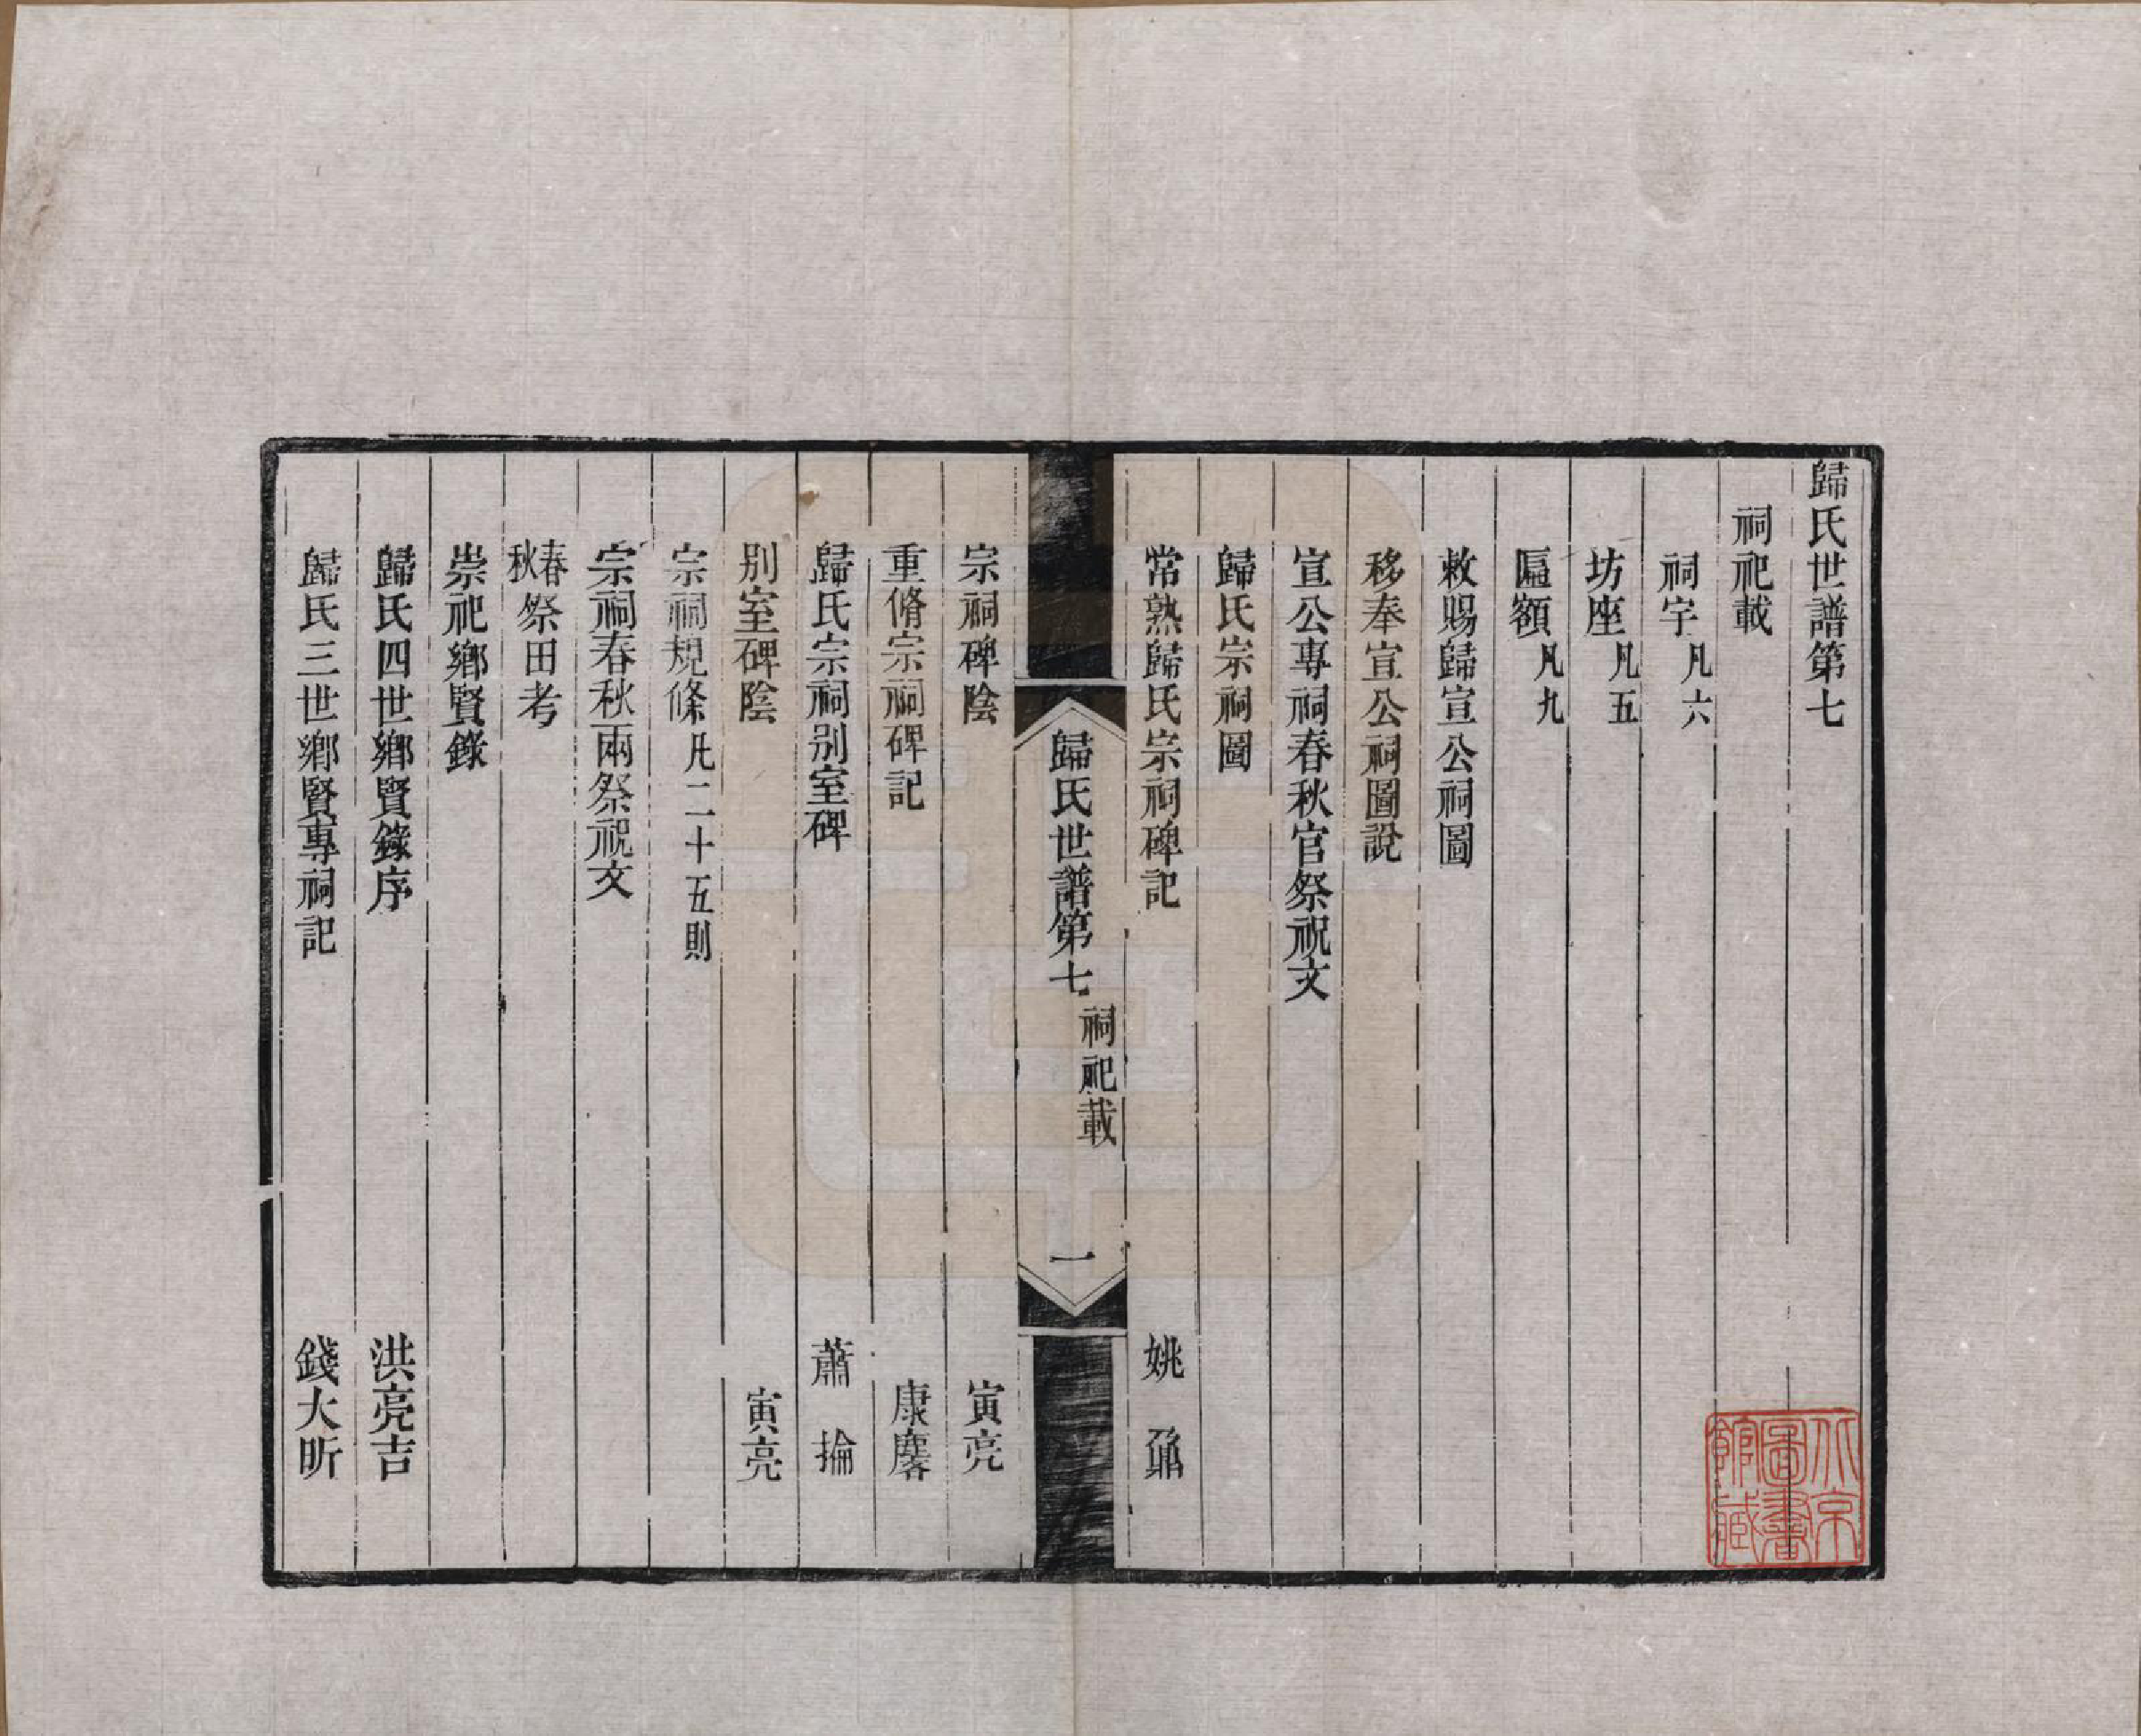 歸氏世譜第七
祠祀載
祠宇凡六
坊座凡五
匾額凡九
敕賜歸宣公祠圖
移奉宣公祠圖說
宣公專祠春秋官祭祝文
歸氏宗祠圖
常熟歸氏宗祠碑記 姚鼐
歸氏世譜第七 祠祀載 一
宗祠碑陰 寅亮
重脩宗祠碑記 康麐
歸氏宗祠别室碑 蕭掄
别室碑陰 寅亮
宗祠規條凡二十五則
宗祠春秋兩祭祝文
春秋祭田考
崇祀鄉賢錄
歸氏四世鄉賢錄序 洪亮吉
歸氏三世鄉賢專祠記 錢大昕
北京圖書館藏